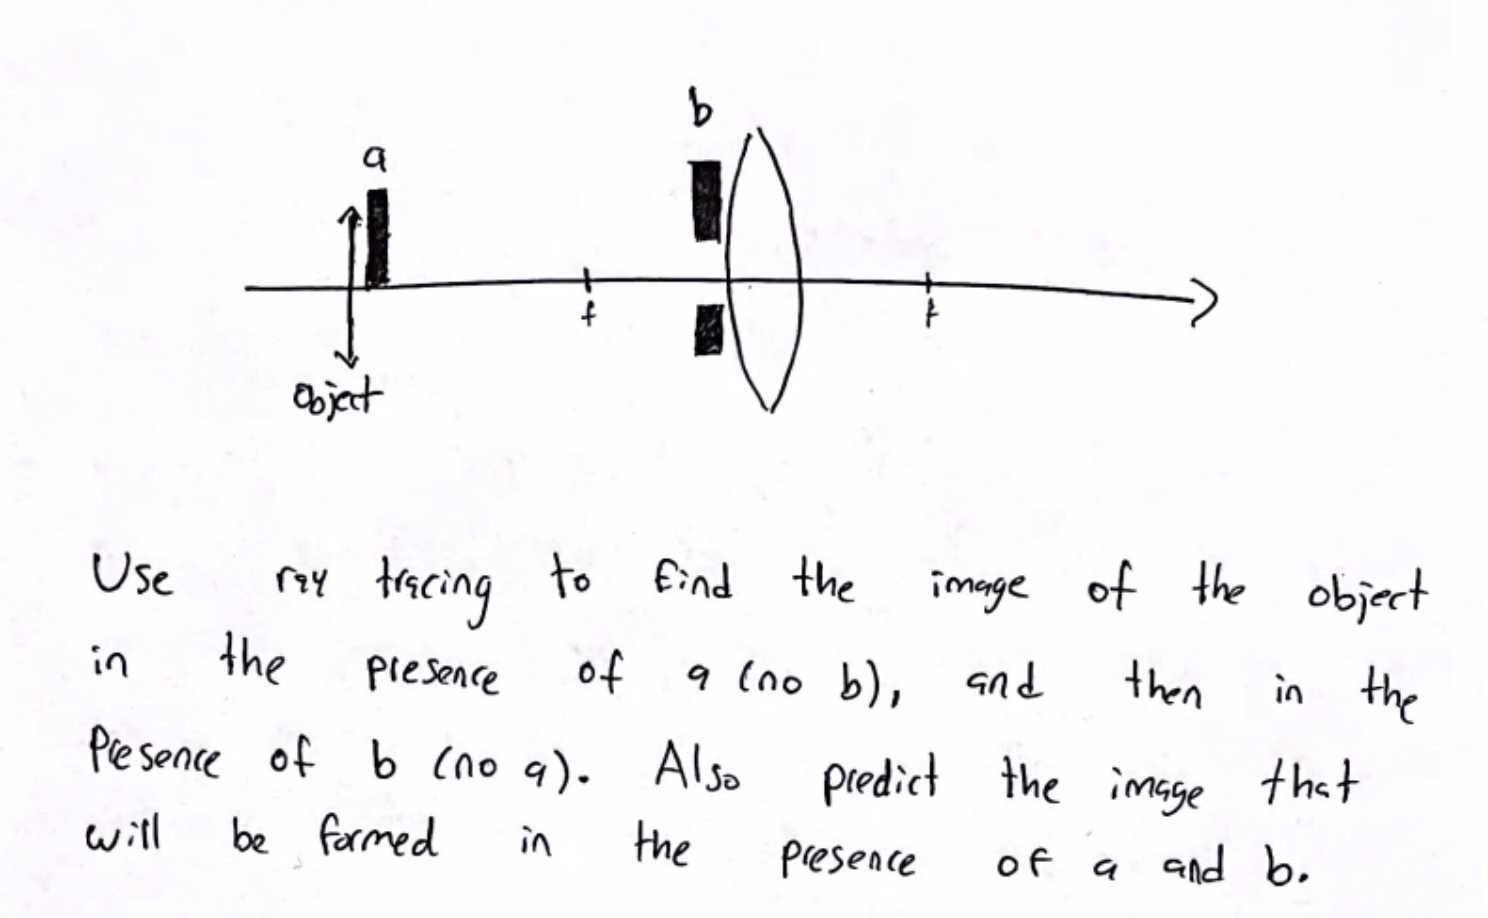 b
a
f
f
Object
Use ray tracing to find the image of the object
in the presence of a (no b), and then in the
Presence of b (no a). Also predict the image that
will be formed in the presence of a and b.